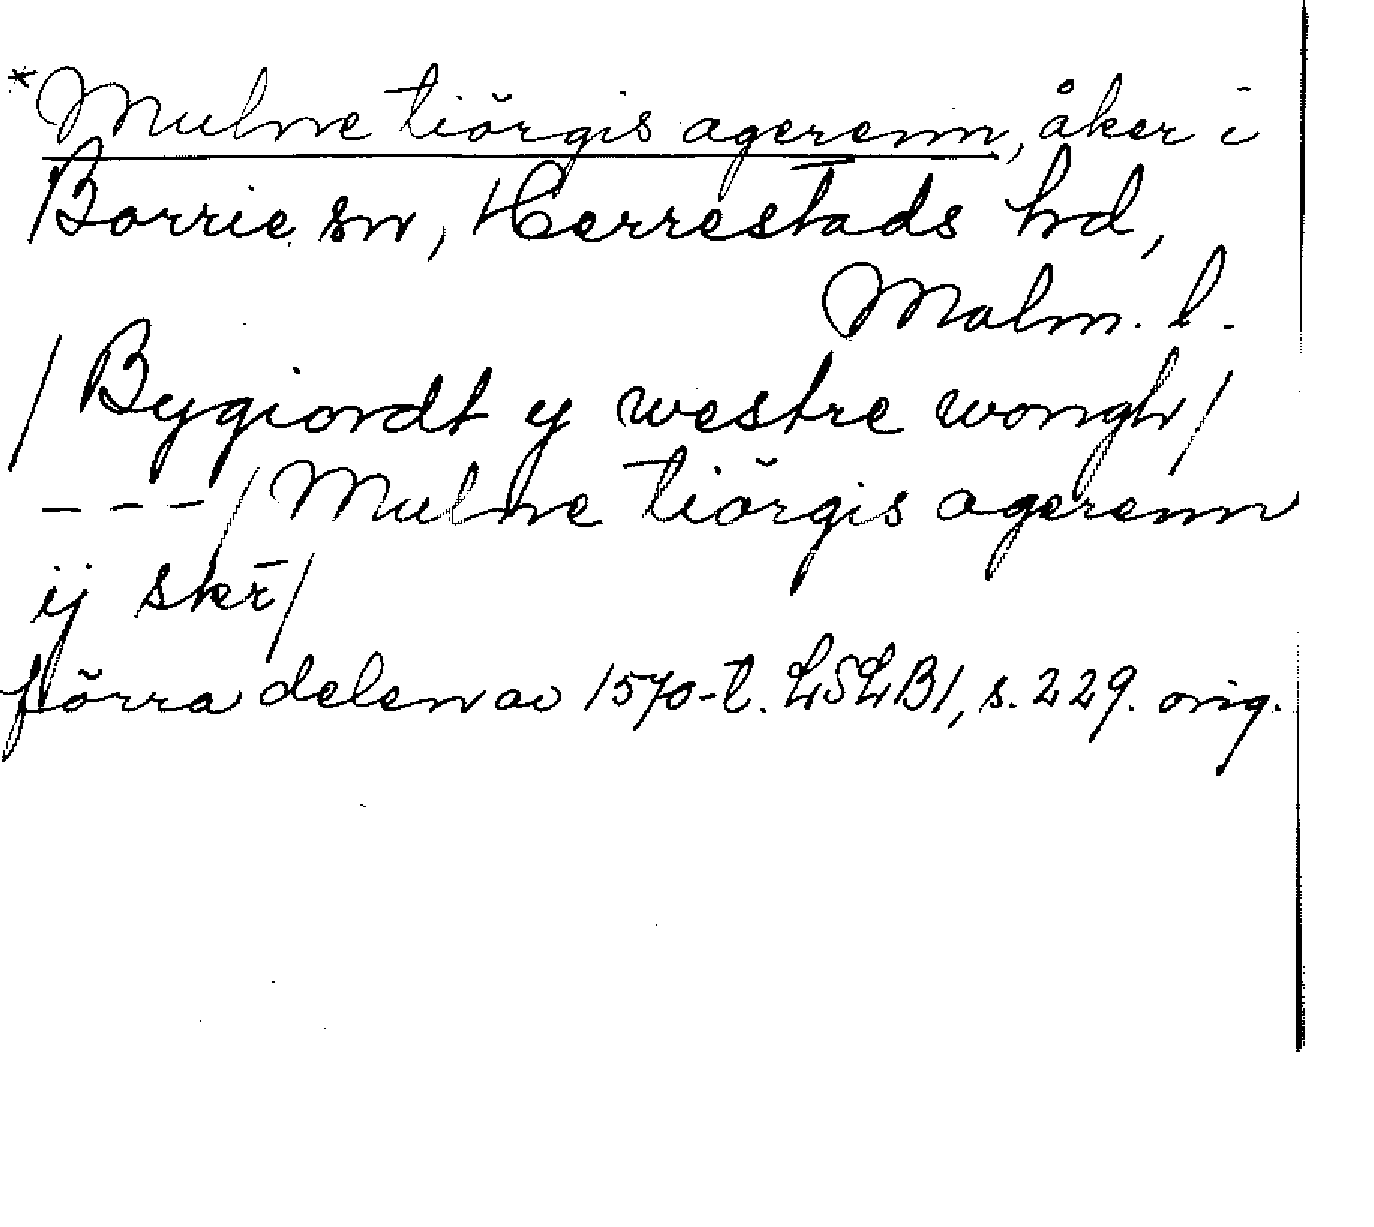 *Mulne tiörgis agerenn, åker i
Borrie sn, Herrestads hd,
Malm. l.
/ Bygiordt y westre wongh /
- - - / Mulne tiörgis agerenn
ij skr̄ /
förra delen av 1570-t. LSLB1, s. 229. orig.